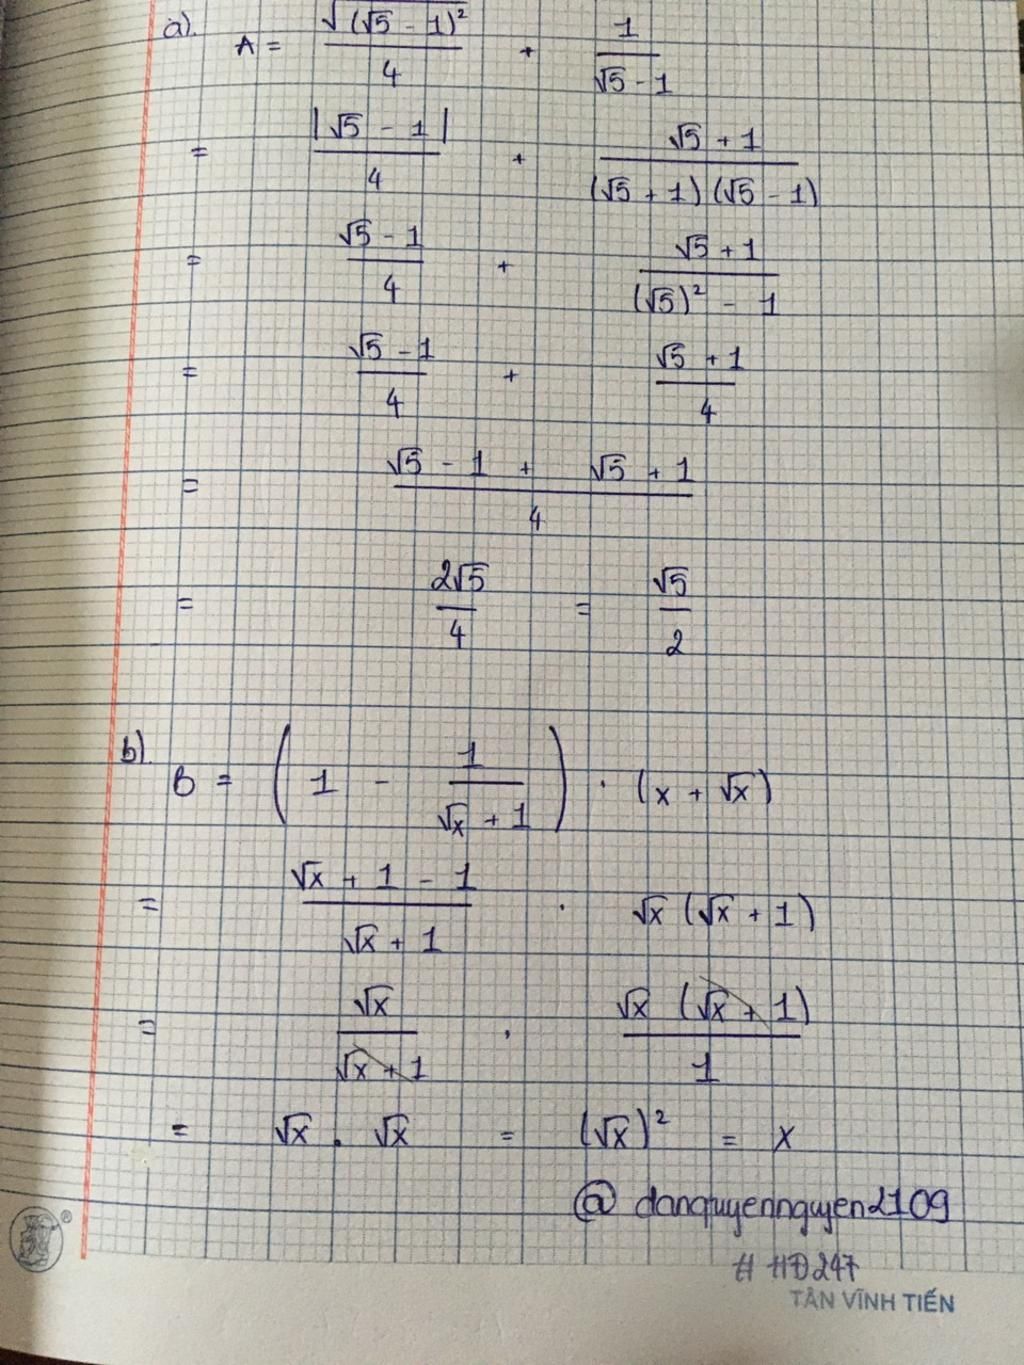 a). A = √(√5 - 1)² / 4 + 1 / (√5 - 1)
= |√5 - 1| / 4 + (√5 + 1) / (√5 + 1)(√5 - 1)
= (√5 - 1) / 4 + (√5 + 1) / ((√5)² - 1)
= (√5 - 1) / 4 + (√5 + 1) / 4
= (√5 - 1 + √5 + 1) / 4
= 2√5 / 4 = √5 / 2
b). B = (1 - 1 / (√x + 1)) . (x + √x)
= (√x + 1 - 1) / (√x + 1) . √x (√x + 1)
= √x / (√x + 1) . √x (√x + 1) / 1
= √x . √x = (√x)² = x
@ danquyennguyen2109
# HĐ247
®
TÂN VĨNH TIẾN